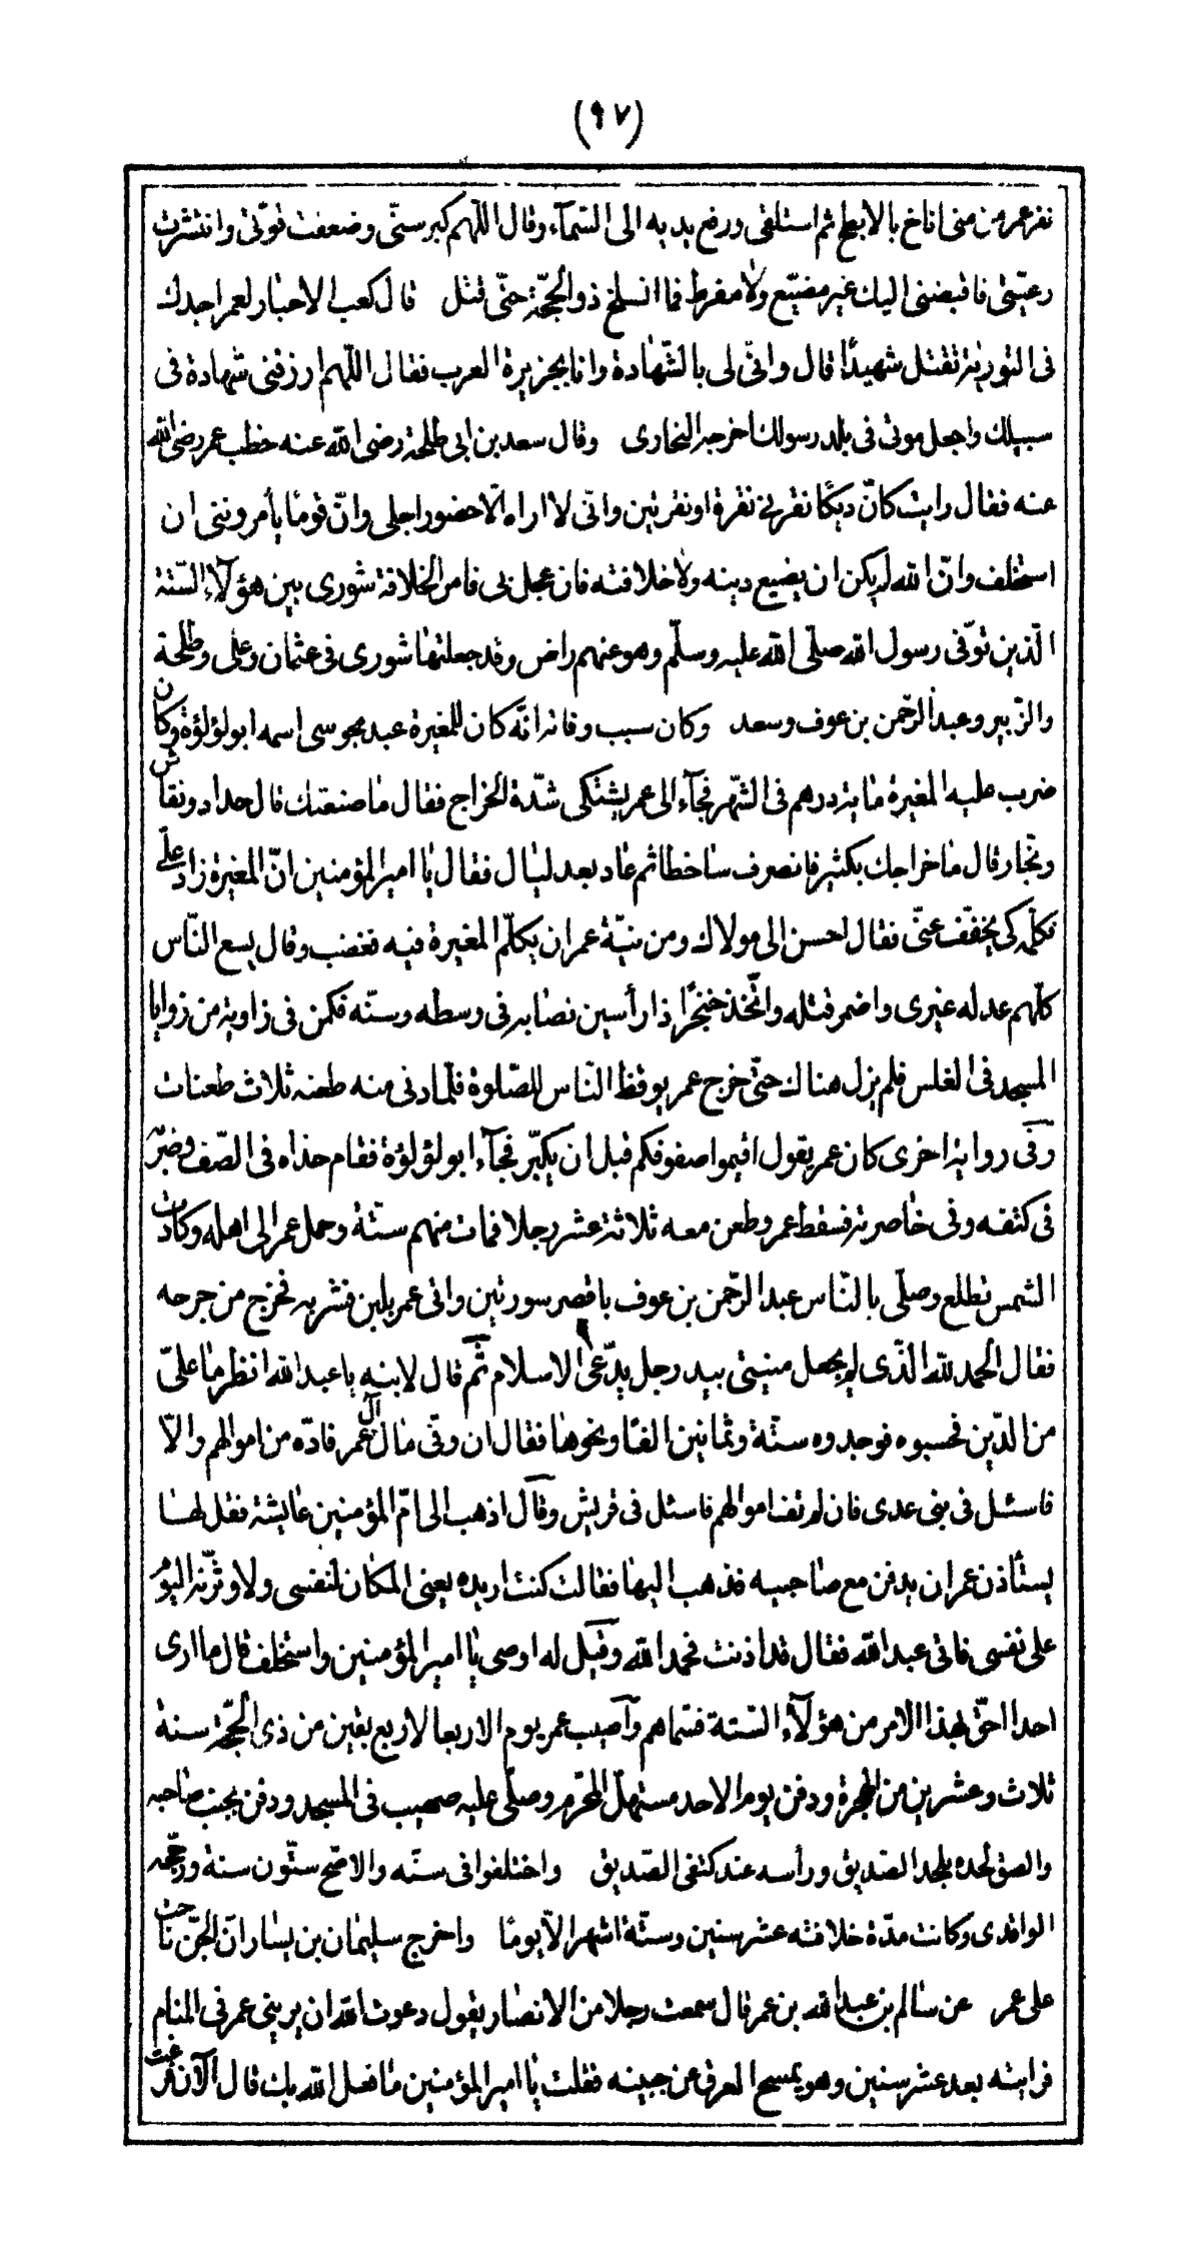 (٩٧)
نفر عمر من منى اناخ بالابطح ثم استلقى ورفع يديه الى السّمآء وقال اللّهم كبر سنّى وضعفت قوّتى وانتشرت
رعيّتى فاقبضنى اليك غير مضيّع ولا مفرط فما انسلخ ذو الحجّة حتّى قتل قال كعب الاحبار لعمر اجدك
فى التورية تقتل شهيدًا قال وانّى لى بالشّهادة وانا بجزيرة العرب فقال اللّهم ارزقنى شهادة فى
سبيلك واجعل موتى فى بلد رسولك اخرجه البخارى وقال سعد بن ابى طلحة رضى الله عنه خطب عمر رضى الله
عنه فقال رايت كانّ ديكًا نقرنى نقرة او نقرتين وانّى لا اراه الّا حضور اجلى وانّ قومًا يأمروننى ان
استخلف وانّ الله لم يكن ان يضيع دينه ولا خلافته فان عجل بى فامر الخلافة شورى بين هؤلآء السّتة
الّذين توّفى رسول الله صلّى الله عليه وسلّم وهو عنهم راض وقد جعلتها شورى فى عثمان وعلى وطلحة
والزّبير وعبد الرّحمن بن عوف وسعد وكان سبب وفاته انّه كان للمغيرة عبد مجوسى اسمه ابو لؤلؤة وكان
ضرب عليه المغيرة مائة درهم فى الشّهر فجآء الى عمر يشتكى شدّة الخراج فقال ما صنعتك قال حداد ونقاش
ونجّار قال ما خراجك بكثير فانصرف ساخطا ثم عاد بعد ليال فقال يا امير المؤمنين انّ المغيرة زاد علىّ
فكلّمه كى يخفّف عنّى فقال احسن الى مولاك ومن نيّة عمر ان يكلّم المغيرة فيه فغضب وقال يسع النّاس
كلّهم عدله غيرى واضمر قتله واتّخذ خنجرًا ذا رأسين نصابه فى وسطه وسنّه فكمن فى زاوية من زوايا
المسجد فى الغلس فلم يزل هناك حتّى خرج عمر يوقظ النّاس للصّلوة فلمّا دنى منه طعنه ثلاث طعنات
وفى رواية اخرى كان عمر يقول اقيموا صفوفكم قبل ان يكبّر فجآء ابو لؤلؤة فقام حذاه فى الصّف وضربه
فى كتفه وفى خاصرته فسقط عمر وطعن معه ثلاثة عشر رجلا فمات منهم ستّة وحمل عمر الى اهله وكادت
الشمس تطلع وصلّى بالنّاس عبد الرّحمن بن عوف باقصر سورتين واتى عمر بلبن فشربه فخرج من جرحه
فقال الحمد لله الذّى لم يجعل منيتى بيد رجل يدّعى الاسلام ثم قال لابنه يا عبد الله انظر ما علىّ
من الدّين فحسبوه فوجدوه ستّة وثمانين الفًا ونحوها فقال ان وفّى مال آل عمر فادّه من اموالهم والّا
فاسئل فى بنى عدى فان لم تف اموالهم فاسئل فى قريش وقال اذهب الى امّ المؤمنين عايشة فقل لها
يستأذن عمر ان يدفن مع صاحبيه فذهب اليها فقالت كنت اريده يعنى المكان لنفسى ولاوثرّنه اليوم
على نفسى فاتى عبد الله فقال قد اذنت فحمد الله وقيل له اوصى يا امير المؤمنين واستخلف قال ما ارى
احدا احقّ بهذا الامر من هؤلآء السّتة فسّماهم واصيب عمر يوم الاربعا لاربع بقين من ذى الحجّة سنة
ثلاث وعشرين من الهجرة ودفن يوم الاحد مستهلّ المحّرم وصلّى عليه صهيب فى المسجد ودفن بجنب صاحبه
والصق لحده بلحد الصّديق ورأسه عند كتفى الصّديق واختلفوا فى سنّه والاصّح ستّون سنة ورجّحه
الواقدى وكانت مدّة خلافته عشر سنين وستّة اشهر الّا يومًا واخرج سليمان بن يسار انّ الجنّ ناحت
على عمر عن سالم بن عبد الله بن عمر قال سمعت رجلا من الانصار يقول دعوت الله ان يرينى عمر فى المنام
فرايته بعد عشر سنين وهو يمسح العرق عن جبينه فقلت يا امير المؤمنين ما فعل الله بك قال الآن فرغت